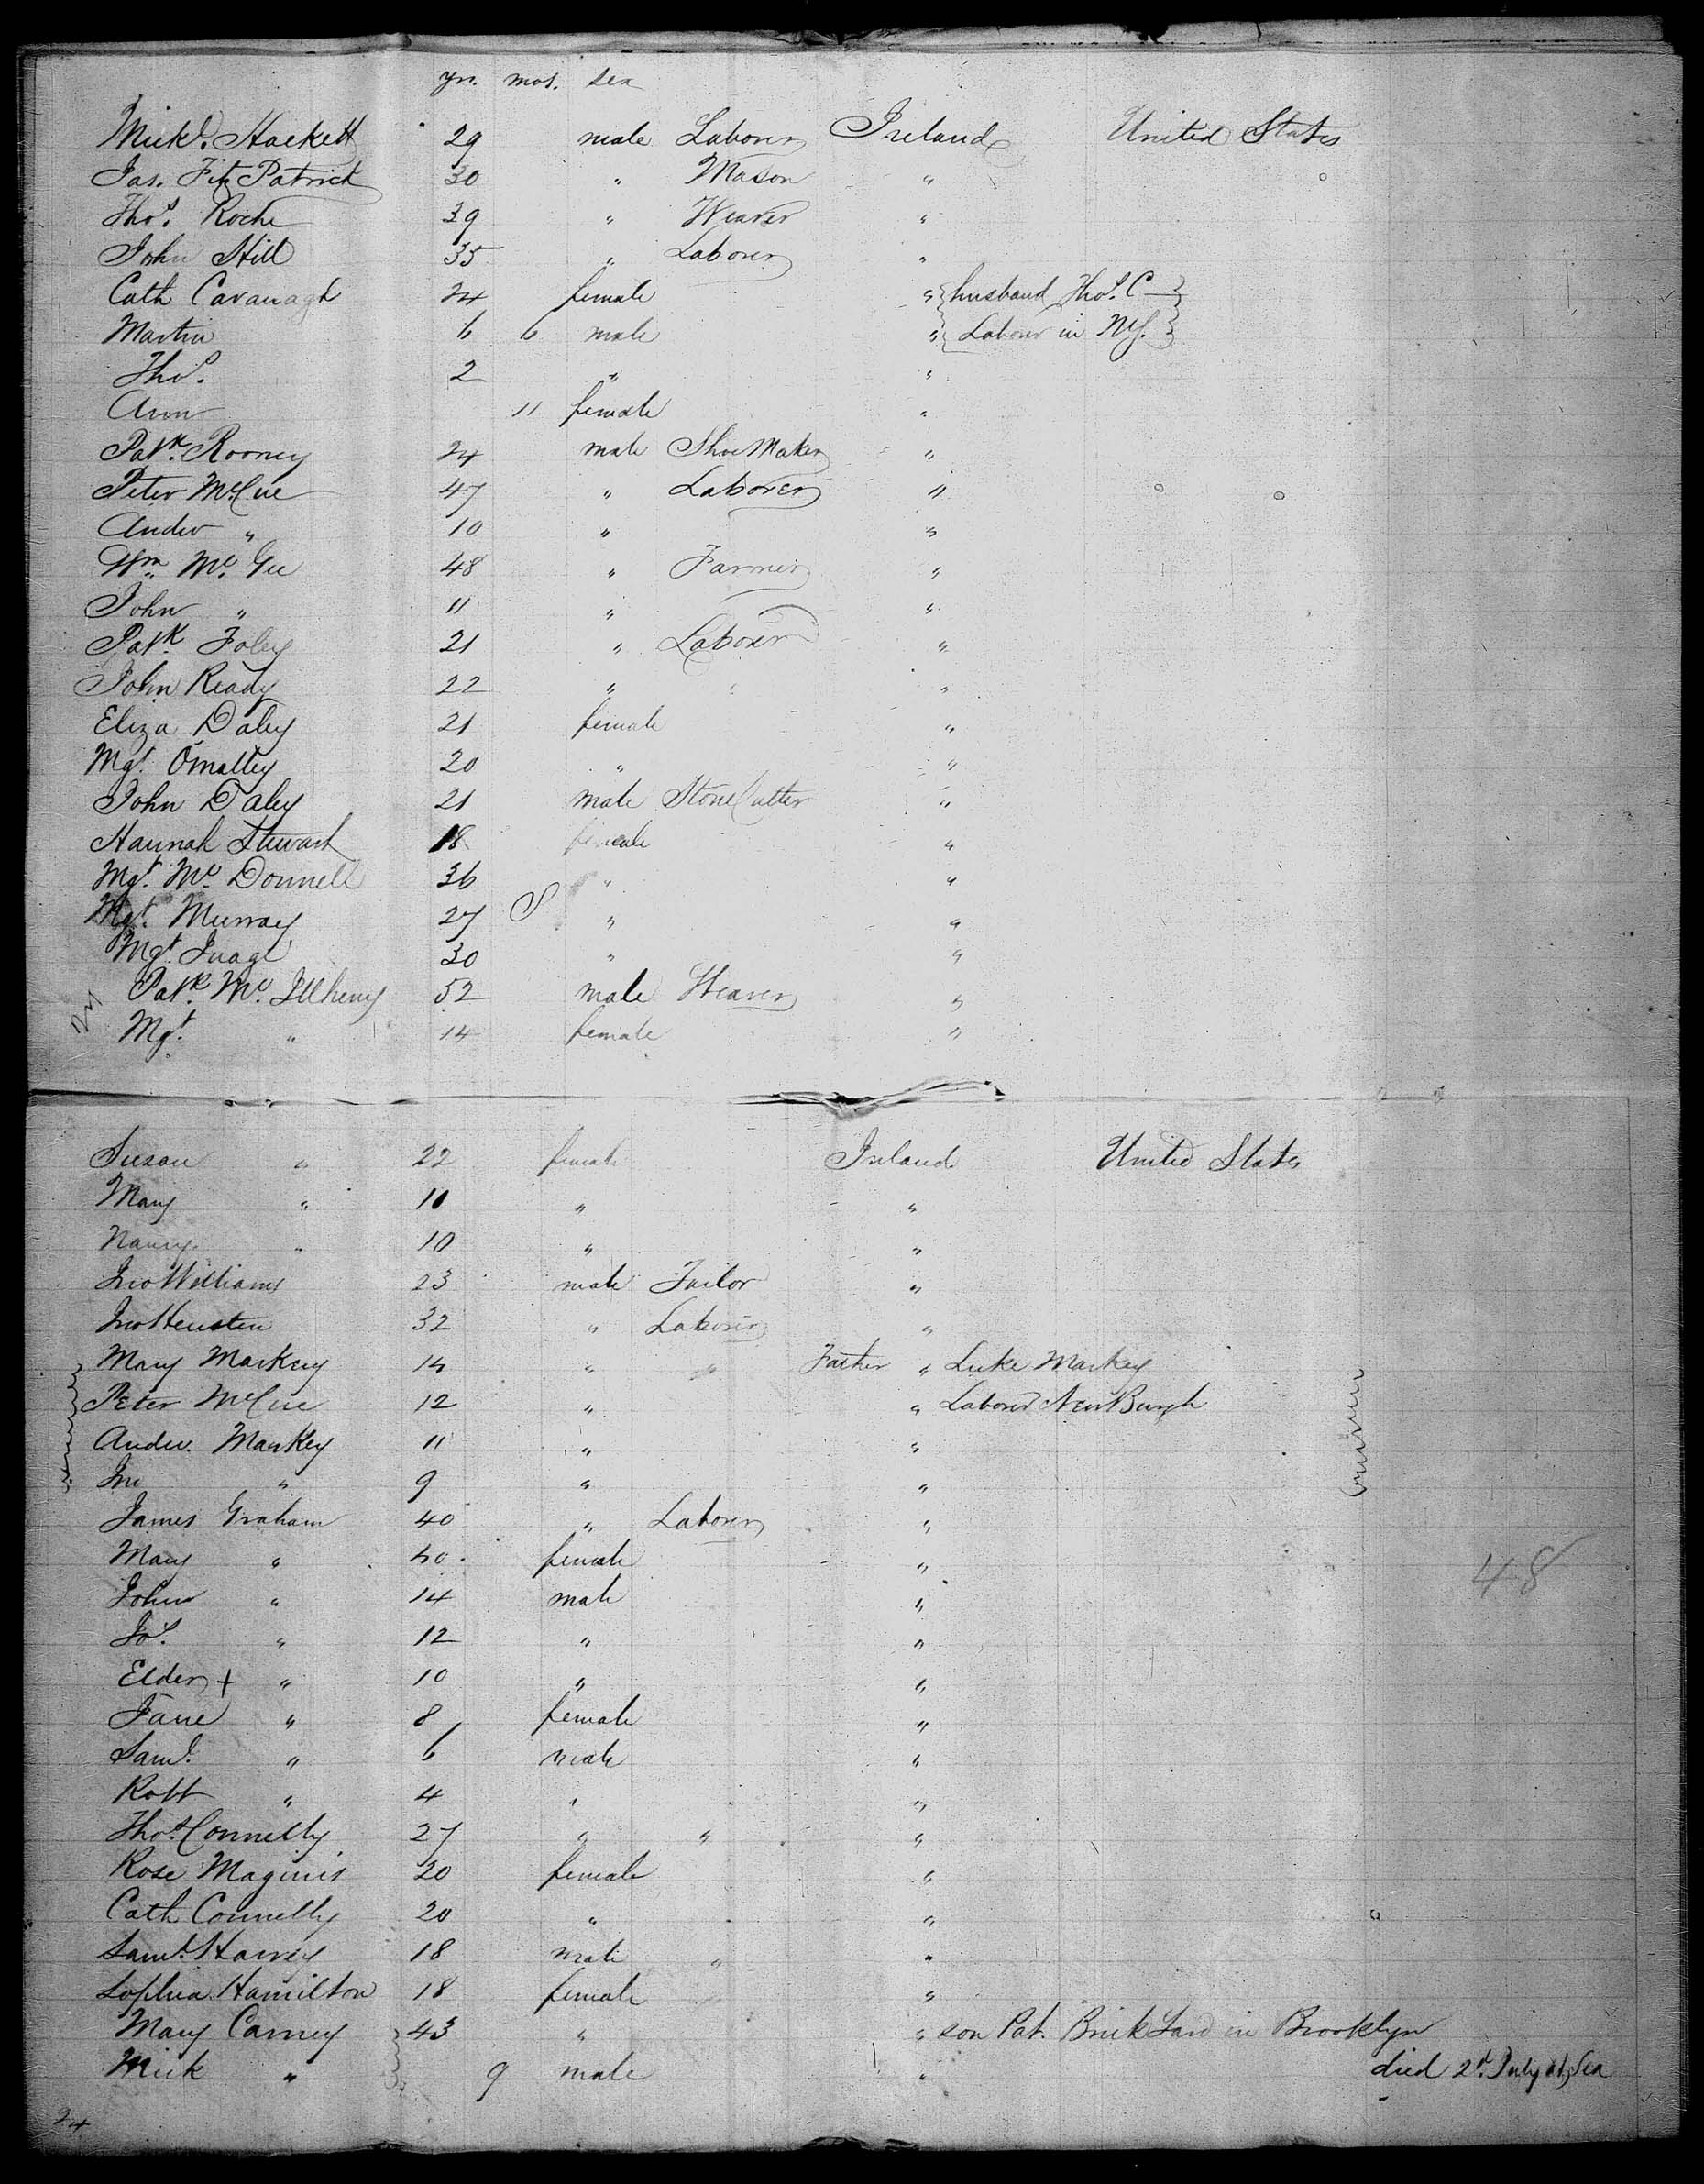 yrs. mos. sex
Mickl. Hackett 29 male Laborer Ireland United States
Jas. Fitz Patrick 30 " Mason "
Thos. Roche 39 " Weaver "
John Hill 35 " Laborer "
Cath Cavanagh 24 female " husband Thos. C—
Martin 6 6 male " Labour in NY.
Thos. 2 " "
Ann 11 female "
Patk. Rooney 24 male ShoeMaker "
Peter McCue 47 " Laborer "
Andw " 10 " "
Wm. Mc. Gee 48 " Farmer "
John " 11 " "
Patk. Foley 21 " Laborer "
John Ready 22 " " "
Eliza Daley 21 female "
Mgt. O'malley 20 " "
John Daley 21 male StoneCutter "
Hannah Stewart 18 female "
Mgt. Mc. Donnell 36 " "
Mgt. Murray 27 " "
Mgt. 30 " "
Patk. Mc. Ilheny 52 male Weaver "
24
Mgt. " 14 female "
Susan " 22 female Ireland United States
Mary " 10 " "
Nancy. " 10 " "
Jno Williams 23 male Tailor "
Jno 32 " Laborer "
Mary Markey 14 " " Father " Luke Markey
Peter McCue 12 " " Laborer NewBurgh
Andw. Markey 11 " "
Jno " 9 " "
James Graham 40 " Laborer "
Mary " 40 female "
48
John " 14 male "
Jos. " 12 " "
Elder + " 10 " "
Jane " 8 female "
Saml. " 6 male "
Robt " 4 " "
Thos. Connelly 27 " " "
Rose Maginis 20 female "
Cath Connelly 20 " "
Saml. Harvey 18 male " "
Sophia Hamilton 18 female "
Mary Carney 43 " " son Pat. Brick Yard in Brooklyn
Mick " 9 male " died 2d. July at Sea
24